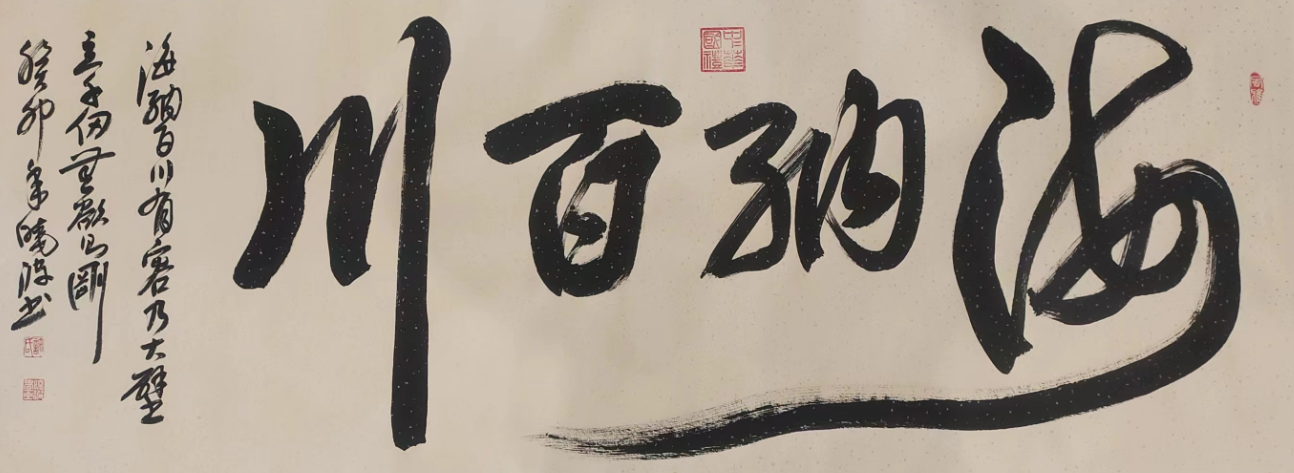 海纳百川
海纳百川有容乃大壁
立千仞无欲则刚
癸卯年晓波书